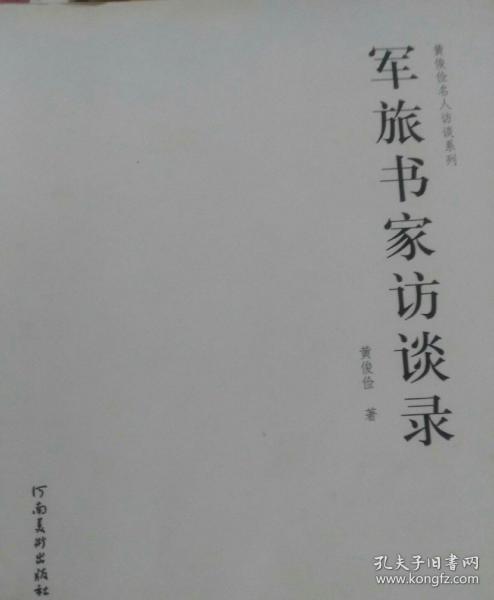 黄俊俭名人访谈系列
军旅书家访谈录
黄俊俭 著
河南美术出版社
孔夫子旧书网
www.kongfz.com